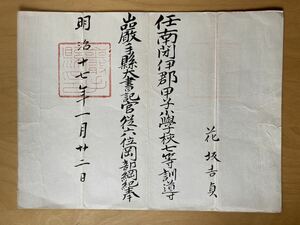 花坂吉貞
任南閉伊郡甲子小學校七等訓導
巖手縣大書記官從六位岡部綱紀奉
明治十七年一月廿二日